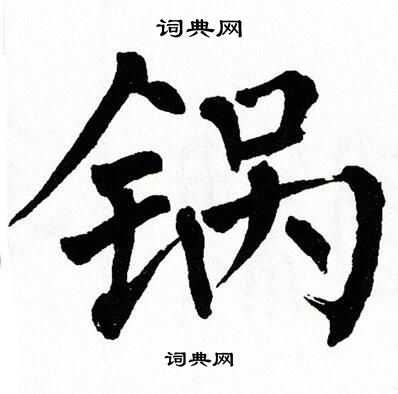 词典网
锅
词典网